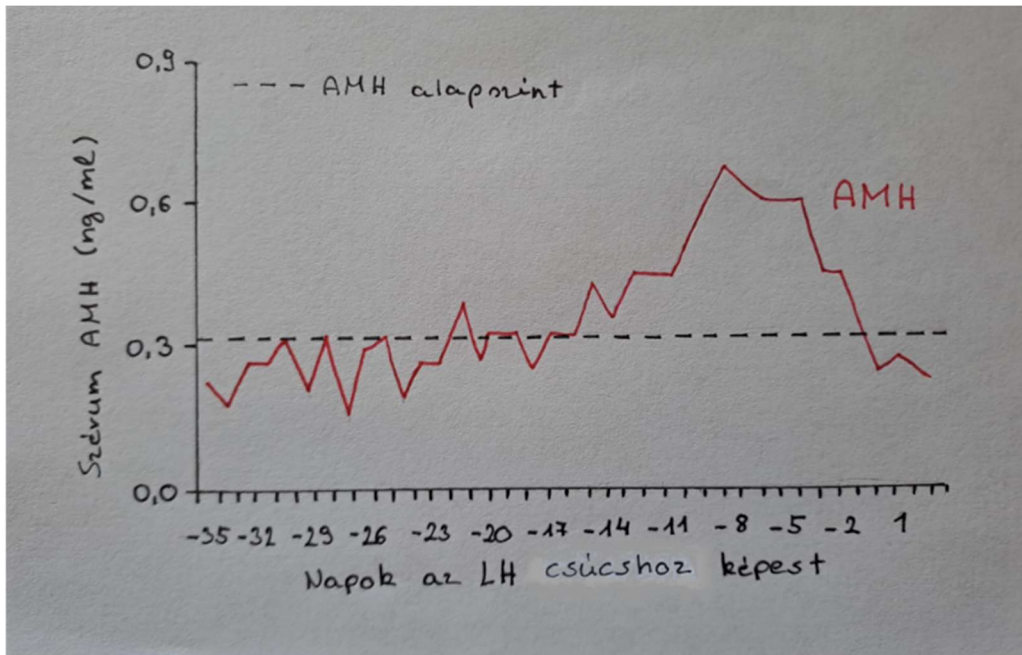 0,9
--- AMH alapszint
0,6
AMH
0,3
0,0
Szérum AMH (ng/ml)
-35 -32 -29 -26 -23 -20 -17 -14 -11 -8 -5 -2 1
Napok az LH csúcshoz képest